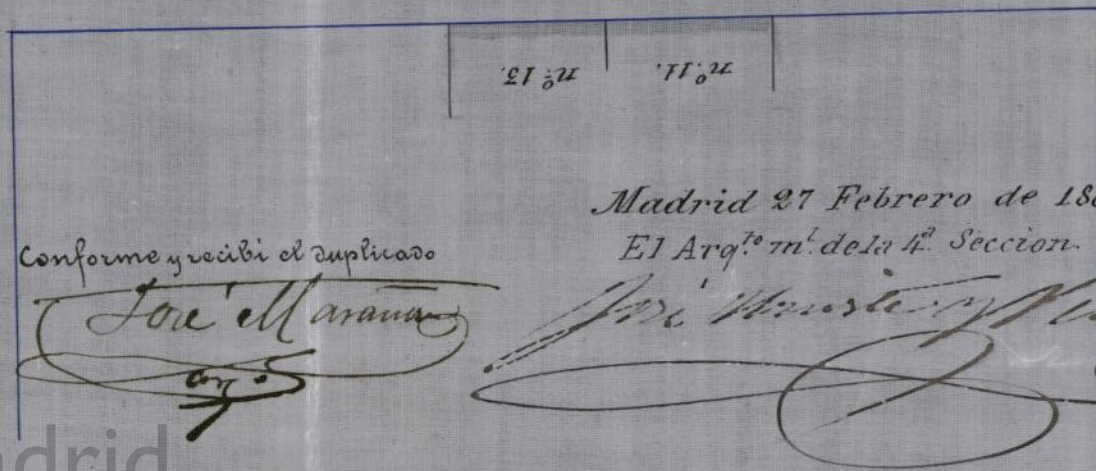 nº 13. nº 11.
Madrid 27 Febrero de 188
El Arqto ml. de la 4ª Seccion.
Conforme y recibi el duplicado
José Marañon
arqº
José
adrid